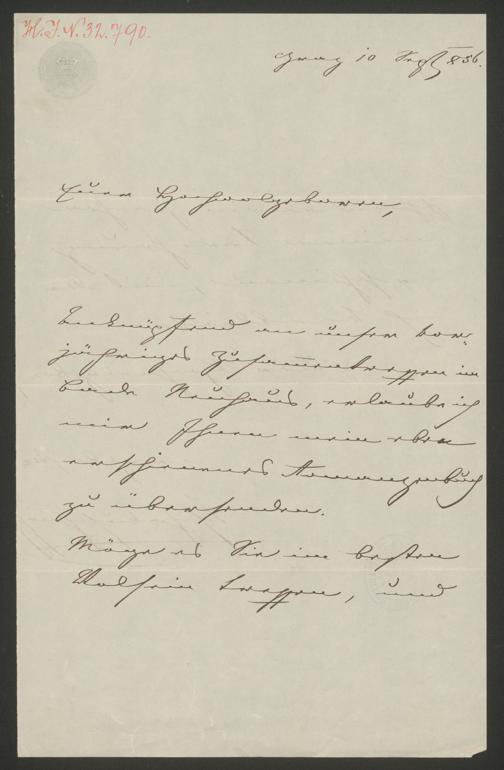 H. I. N. 32.790.
Graz 10 Sept 856.
Euer Hochwolgeboren,
Anknüpfend an unser vor-
jähriges Zusammentreffen im
Bade Neuhaus, erlaube ich
mir Ihnen mein eben
erschienenes Romanzenbuch
zu übersenden.
Möge es Sie im besten
Wolsein treffen, und